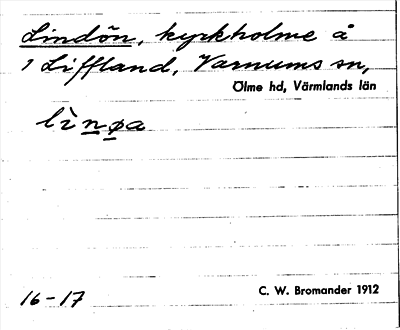 Lindön, kyrkholme å
1 Liffland, Varnums sn,
Ölme hd, Värmlands län
lìn̲ø̲a
16-17
C. W. Bromander 1912